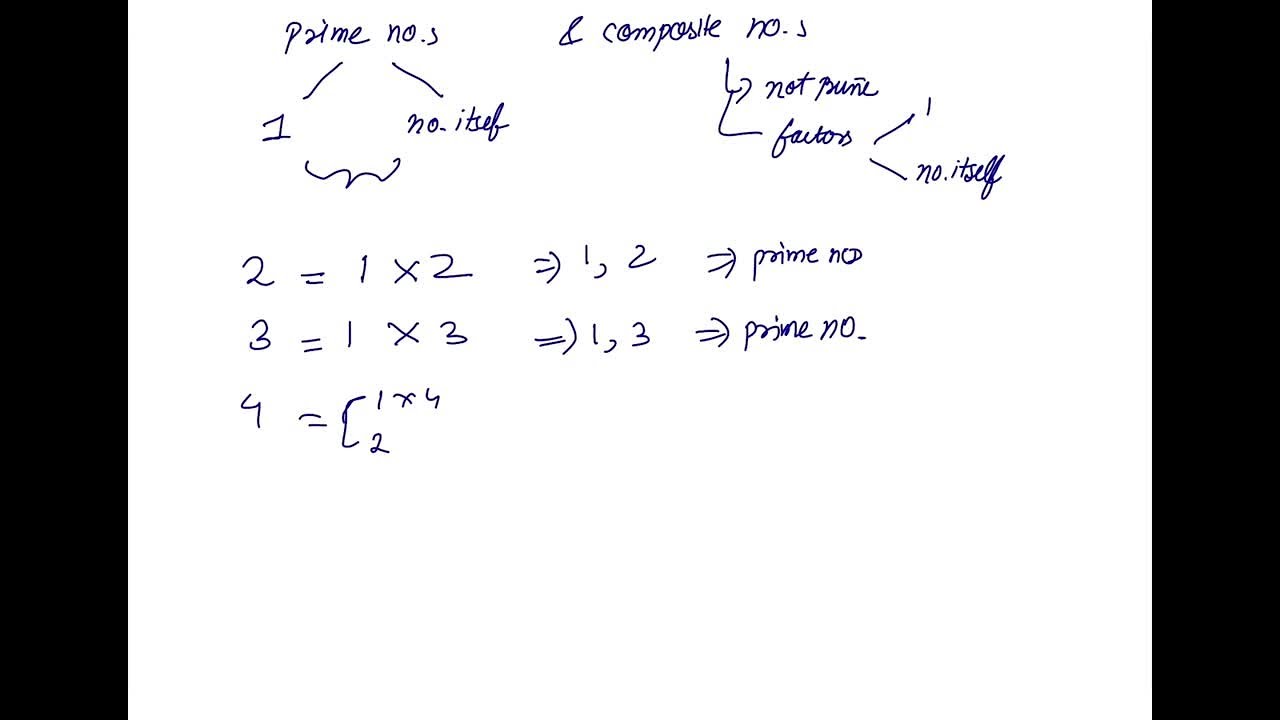 prime no.s & composite no.s
not prime
1 no. itself factors 1
no. itself
2 = 1 × 2 ⇒ 1, 2 ⇒ prime no
3 = 1 × 3 ⇒ 1, 3 ⇒ prime no.
4 = [ 1 × 4
2